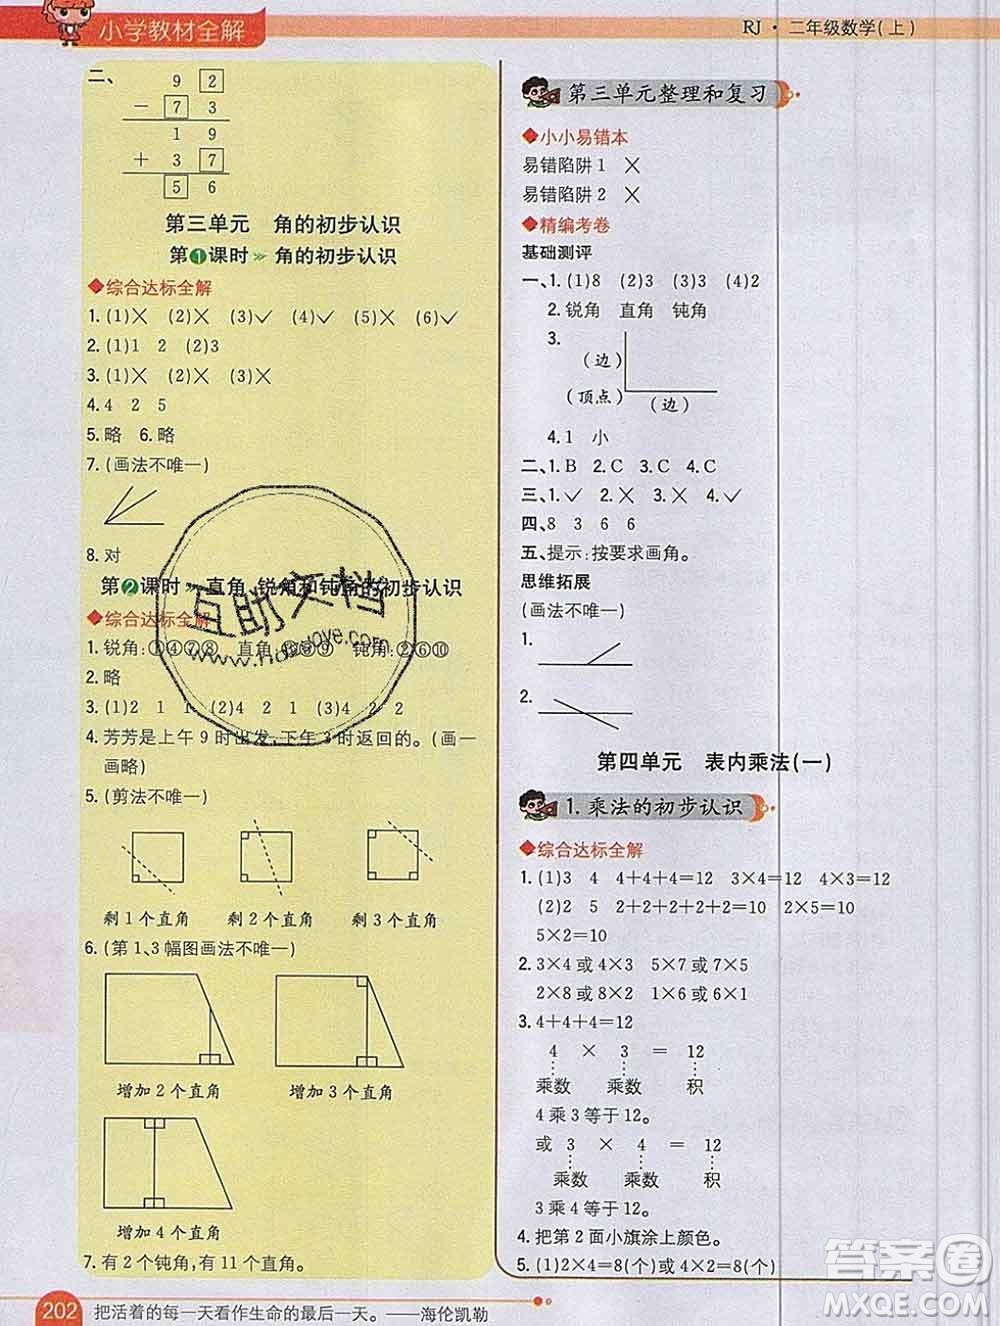 小学教材全解
RJ·二年级数学(上)
二、 9 2
－ 7 3
1 9
＋ 3 7
5 6
第三单元 角的初步认识
第1课时 » 角的初步认识
◆综合达标全解
1. (1)× (2)× (3)✓ (4)✓ (5)× (6)✓
2. (1)1 2 (2)3
3. (1)× (2)× (3)×
4. 4 2 5
5. 略 6. 略
7. (画法不唯一)
8. 对
第2课时 » 直角、锐角和钝角的初步认识
◆综合达标全解
1. 锐角: ④⑦⑧ 直角: ⑨ 钝角:②⑥⑩
2. 略
3. (1)2 1 1 (2)4 2 1 (3)4 2 2
4. 芳芳是上午 9 时出发,下午 3 时返回的。(画一
画略)
5. (剪法不唯一)
剩 1 个直角 剩 2 个直角 剩 3 个直角
6. (第 1、3 幅图画法不唯一)
增加 2 个直角 增加 3 个直角
增加 4 个直角
7. 有 2 个钝角,有 11 个直角。
202 把活着的每一天看作生命的最后一天。——海伦凯勒
第三单元整理和复习
◆小小易错本
易错陷阱 1 ×
易错陷阱 2 ×
◆精编考卷
基础测评
一、1. (1)8 (2)3 (3)3 (4)2
2. 锐角 直角 钝角
3.
(边)
(顶点)
(边)
4. 1 小
二、1. B 2. C 3. C 4. C
三、1. ✓ 2. × 3. × 4. ✓
四、8 3 6 6
五、提示:按要求画角。
思维拓展
(画法不唯一)
1.
2.
第四单元 表内乘法(一)
1. 乘法的初步认识
◆综合达标全解
1. (1)3 4 4+4+4=12 3×4=12 4×3=12
(2)2 5 2+2+2+2+2=10 2×5=10
5×2=10
2. 3×4 或 4×3 5×7 或 7×5
2×8 或 8×2 1×6 或 6×1
3. 4+4+4=12
4 × 3 = 12
乘数 乘数 积
4 乘 3 等于 12。
或 3 × 4 = 12
乘数 乘数 积
3 乘 4 等于 12。
4. 把第 2 面小旗涂上颜色。
5. (1)2×4=8(个)或 4×2=8(个)
互助文档
www.
答案圈
MXQE.COM